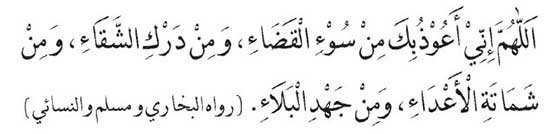 اَللّٰهُمَّ إِنِّيْ أَعُوْذُ بِكَ مِنْ سُوْءِ الْقَضَاءِ، وَمِنْ دَرَكِ الشَّقَاءِ، وَمِنْ
شَمَاتَةِ الْأَعْدَاءِ، وَمِنْ جَهْدِ الْبَلَاءِ. (رواه البخاري ومسلم والنسائي)